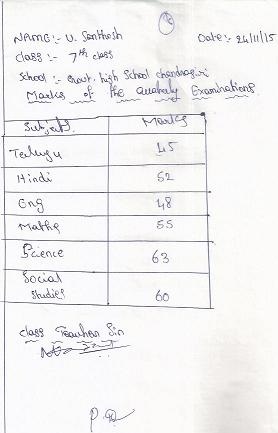 NAME:- U. Santhosh
Date:- 24/11/15
class:- 7th class
School:- Govt. high School chandragiri
Marks of the Quately Examinations
Subjects Marks
Telugu 45
Hindi 52
Eng 48
Maths 55
Science 63
Social
Studies 60
class Teacher Sin